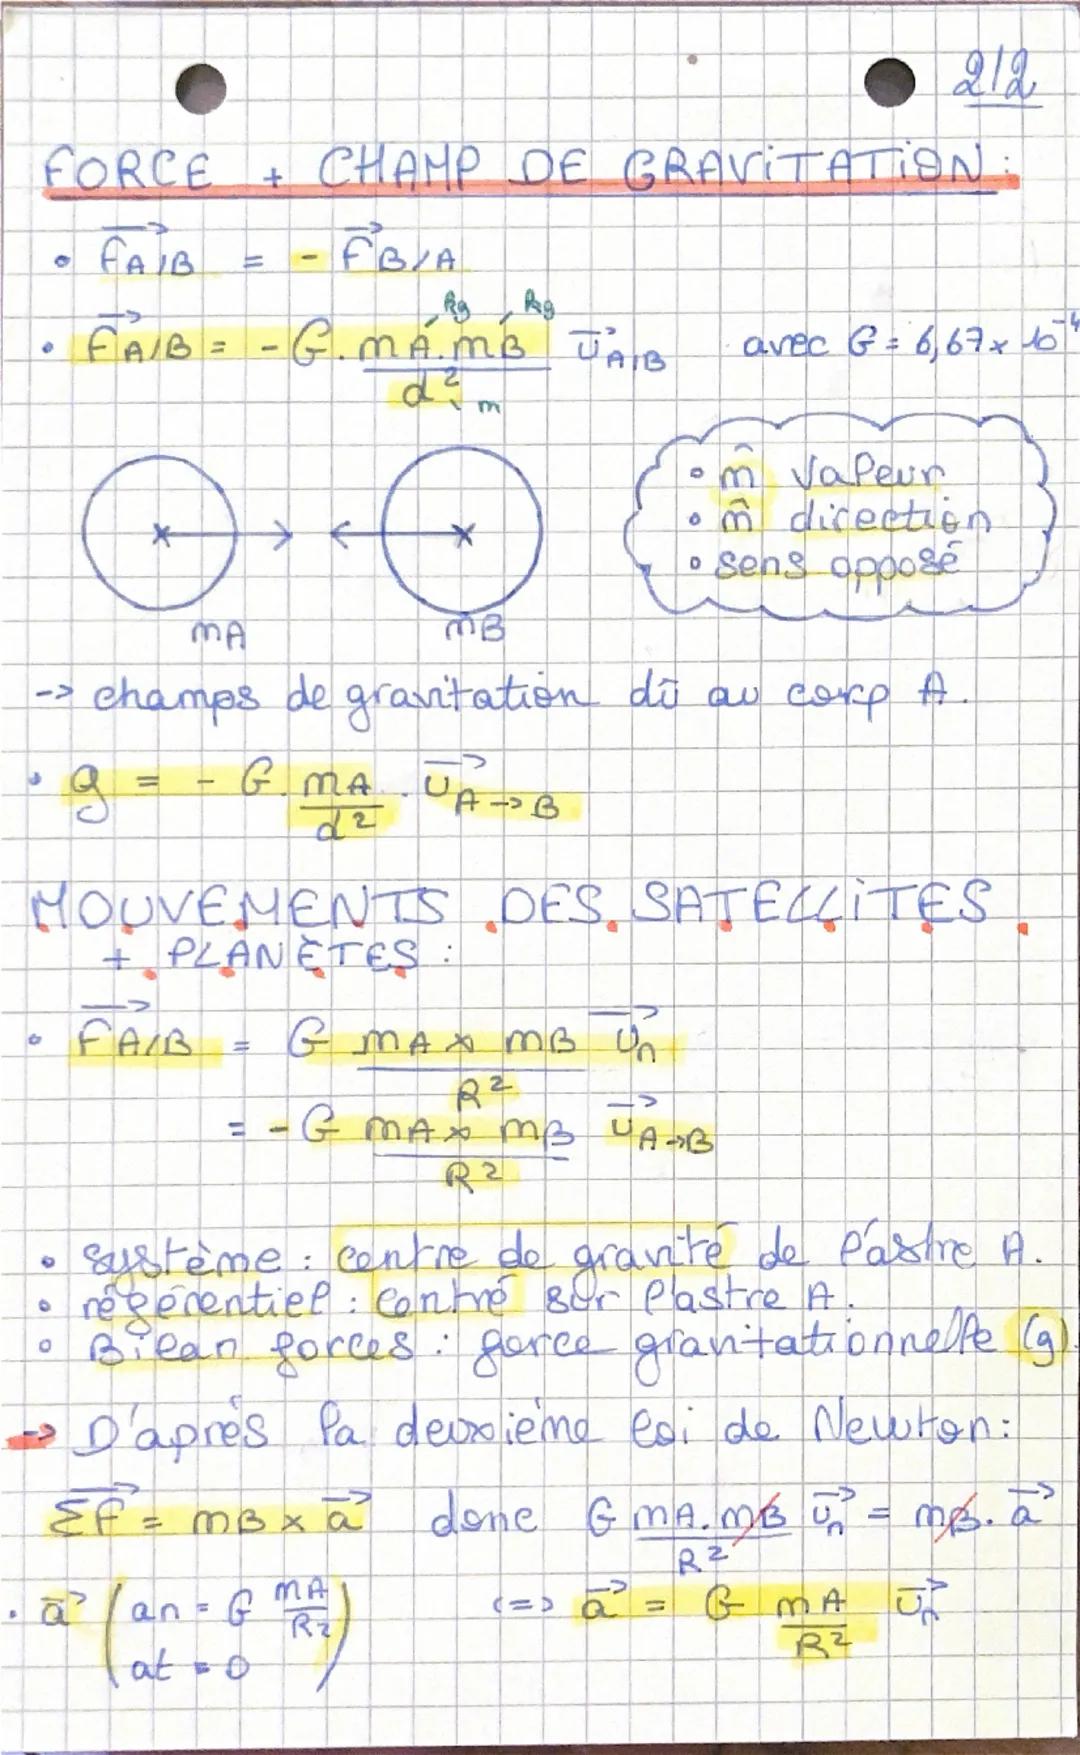 2/2
FORCE + CHAMP DE GRAViTATiON :
• \vec{FA/B} = - \vec{FB/A}
• \vec{FA/B} = - G. \frac{mA.mB}{d²} \vec{U}A/B avec G = 6,67 x 10^-
kg kg
m
• m̂ valeur
• m̂ direction
• sens opposé
mA mB
-> champs de gravitation dû au corp A.
• g = - G. \frac{mA}{d²} . \vec{U}A->B
MOUVEMENTS DES SATELLiTES
+ PLANÈTES :
• \vec{FA/B} = G \frac{mA x mB}{R²} \vec{Un}
= - G \frac{mA x mB}{R²} \vec{U}A->B
• système : centre de gravité de l'astre A.
• référentiel : centré sur l'astre A.
• Bilan forces : force gravitationnelle (g).
-> D'après la deuxième loi de Newton:
\vec{ΣF} = mB x \vec{a} donc G \frac{mA.mB}{R²} \vec{Un} = mB. \vec{a}
• \vec{a} ( an = G \frac{mA}{R²} <=> \vec{a} = G \frac{mA}{R²} \vec{Un}
at = 0 )